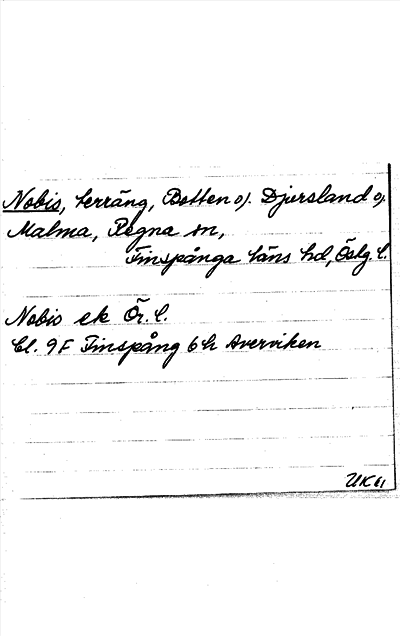 Nobis, terräng, Botten o/. Djursland o/.
Malma, Regna sn,
Finspånga läns hd, Östg. l.
Nobis ek Ör. l.
Bl. 9F Finspång 6h Averviken
UK 61